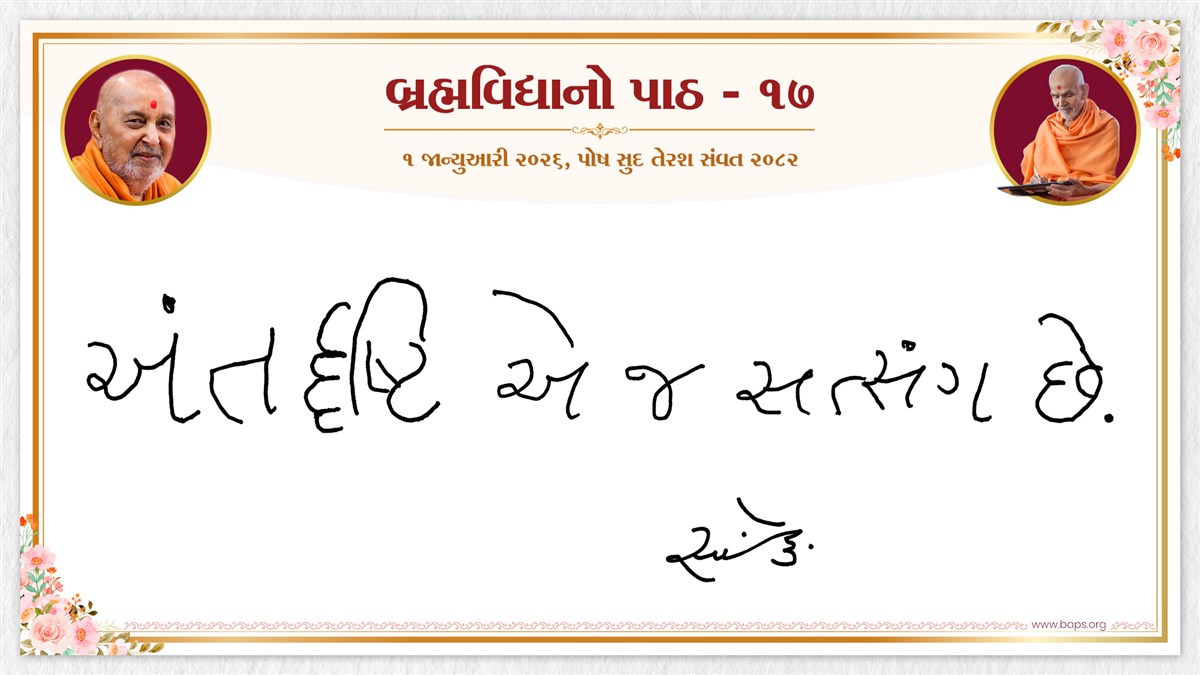 બ્રહ્મવિદ્યાનો પાઠ - ૧૭
૧ જાન્યુઆરી ૨૦૨૬, પોષ સુદ તેરશ સંવત ૨૦૮૨
અંતર્દૃષ્ટિ એ જ સત્સંગ છે.
www.baps.org